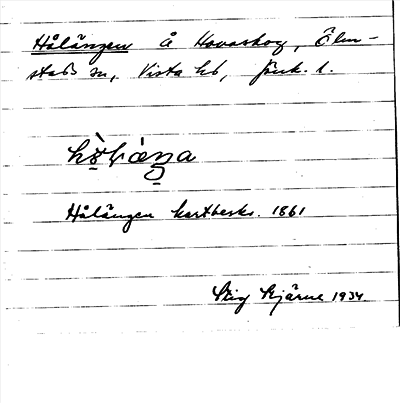 Hålängen å Havaskog, Ölm-
stads sn, Vista hd, Jönk. l.
Hålängen kartbeskr. 1861
Stig Bjärne 1934.